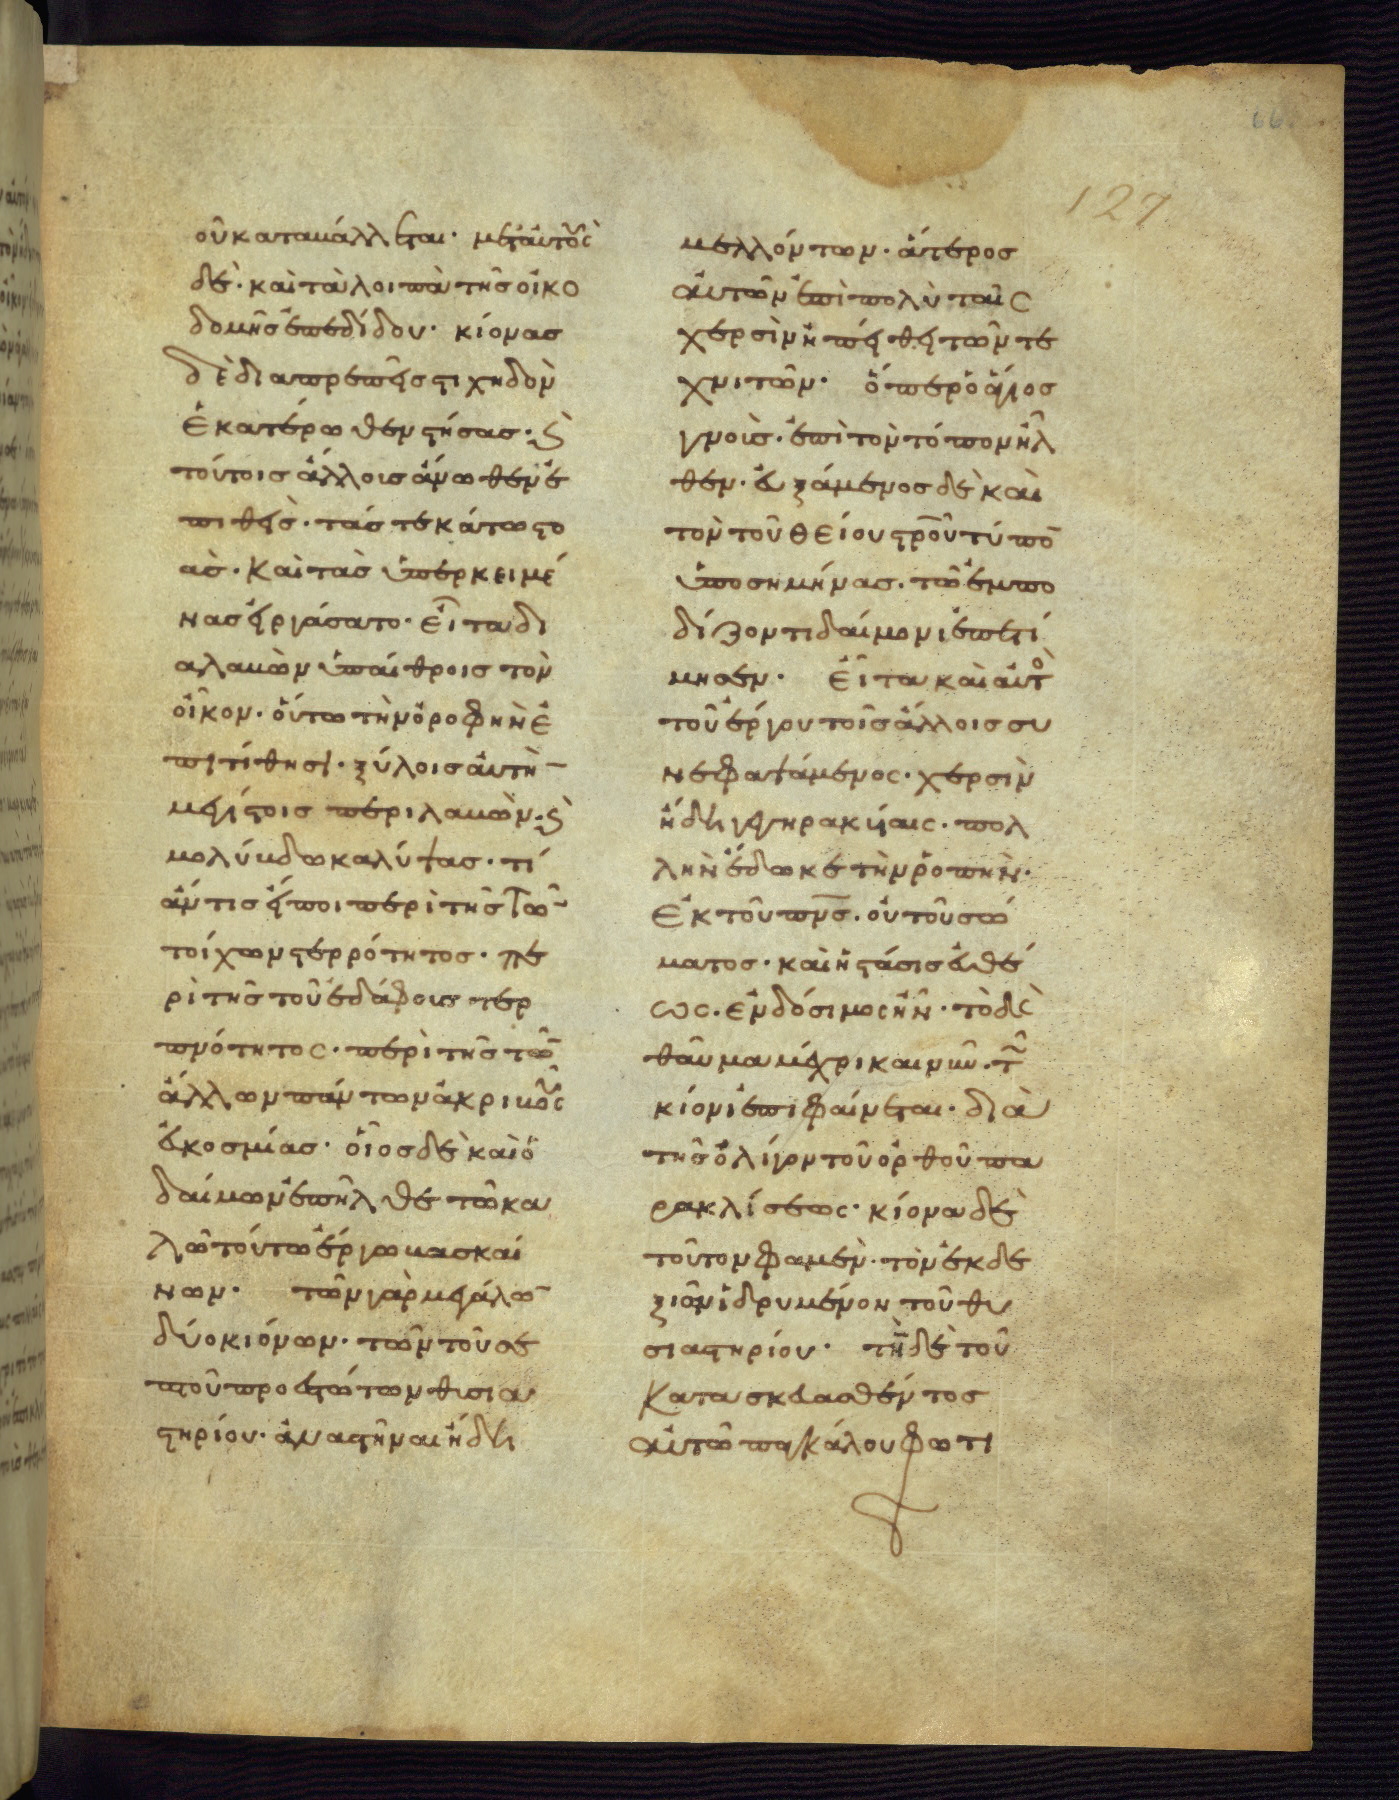 66
127
οὐ καταβάλλεται· μετ' αὐτοὺς
δὲ· καὶ τὰ λοιπὰ τῆς οἰκο
δομῆς ἐπεδίδου· κίονας
δὲ διαπρεπεῖς στιχηδὸν
ἑκατέρωθεν στήσας· ϗ
τούτοις ἄλλοις ἄνωθεν ἐ
πιθεὶς· τάς τε κάτω στο
ὰς· καὶ τὰς ὑπερκειμέ
νας εἰργάσατο· εἶτα δι
αλαβὼν ὑπαίθροις τὸν
οἶκον· οὕτω τὴν ὀροφὴν ἐ
πιτίθησι· ξύλοις αὐτὴν
μεγίστοις περιλαβὼν· ϗ
μολύβδω καλύψας· τί
ἄν τις εἴποι περὶ τῆς τῶν
τοίχων στερρότητος· πε
ρὶ τῆς τοῦ ἐδάφους τερ
πνότητος· περὶ τῆς τῶν
ἄλλων πάντων ἀκριβοῦς
εὐκοσμίας· οἷος δὲ καὶ ὁ
δαίμων ἐπῆλθε τῶ κα
λῶ τούτω ἔργω βασκαί
νων· τῶν γὰρ μεγάλων
δύο κιόνων· τῶν τοῦ σε
πτοῦ προεστώτων θυσια
στηρίου· ἀναστῆναι ἤδη
μελλόντων· ἅτερος
αὐτῶν ἐπὶ πολὺ ταῖς
χερσὶν ἠπείθει τῶν τε
χνιτῶν· ὅπερ ὁ ἅγιος
γνοὺς· ἐπὶ τὸν τόπον ἦλ
θεν· εὐξάμενος δὲ καὶ
τὸν τοῦ θείου στροῦ τύπον
ὑποσημήνας· τῶ ἐμπο
δίζοντι δαίμονι ἐπετί
μησεν· εἶτα καὶ αὐτὸς
τοῦ ἔργου τοῖς ἄλλοις συ
νεφαψάμενος· χερσὶν
ἤδη γεγηρακυίαις· πολ
λὴν ἔδωκε τὴν ῥοπὴν·
ἐκ τοῦ πνς· οὐ τοῦ σώ
ματος· καὶ ἡ στάσις εὐθέ
ως· ἐνδόσιμος ἦν· τὸ δὲ
θαῦμα μέχρι καὶ νῦν· τῶ
κίονι ἐπιφαίνεται· διὰ
τῆς ὀλίγον τοῦ ὀρθοῦ πα
ρακλίσεως· κίονα δὲ
τοῦτον φαμὲν· τὸν ἐκ δε
ξιῶν ἱδρυμένον τοῦ θυ
σιαστηρίου· τῆ δὲ τοῦ
κατασκευασθέντος
αὐτῶ παγκάλου φωτι